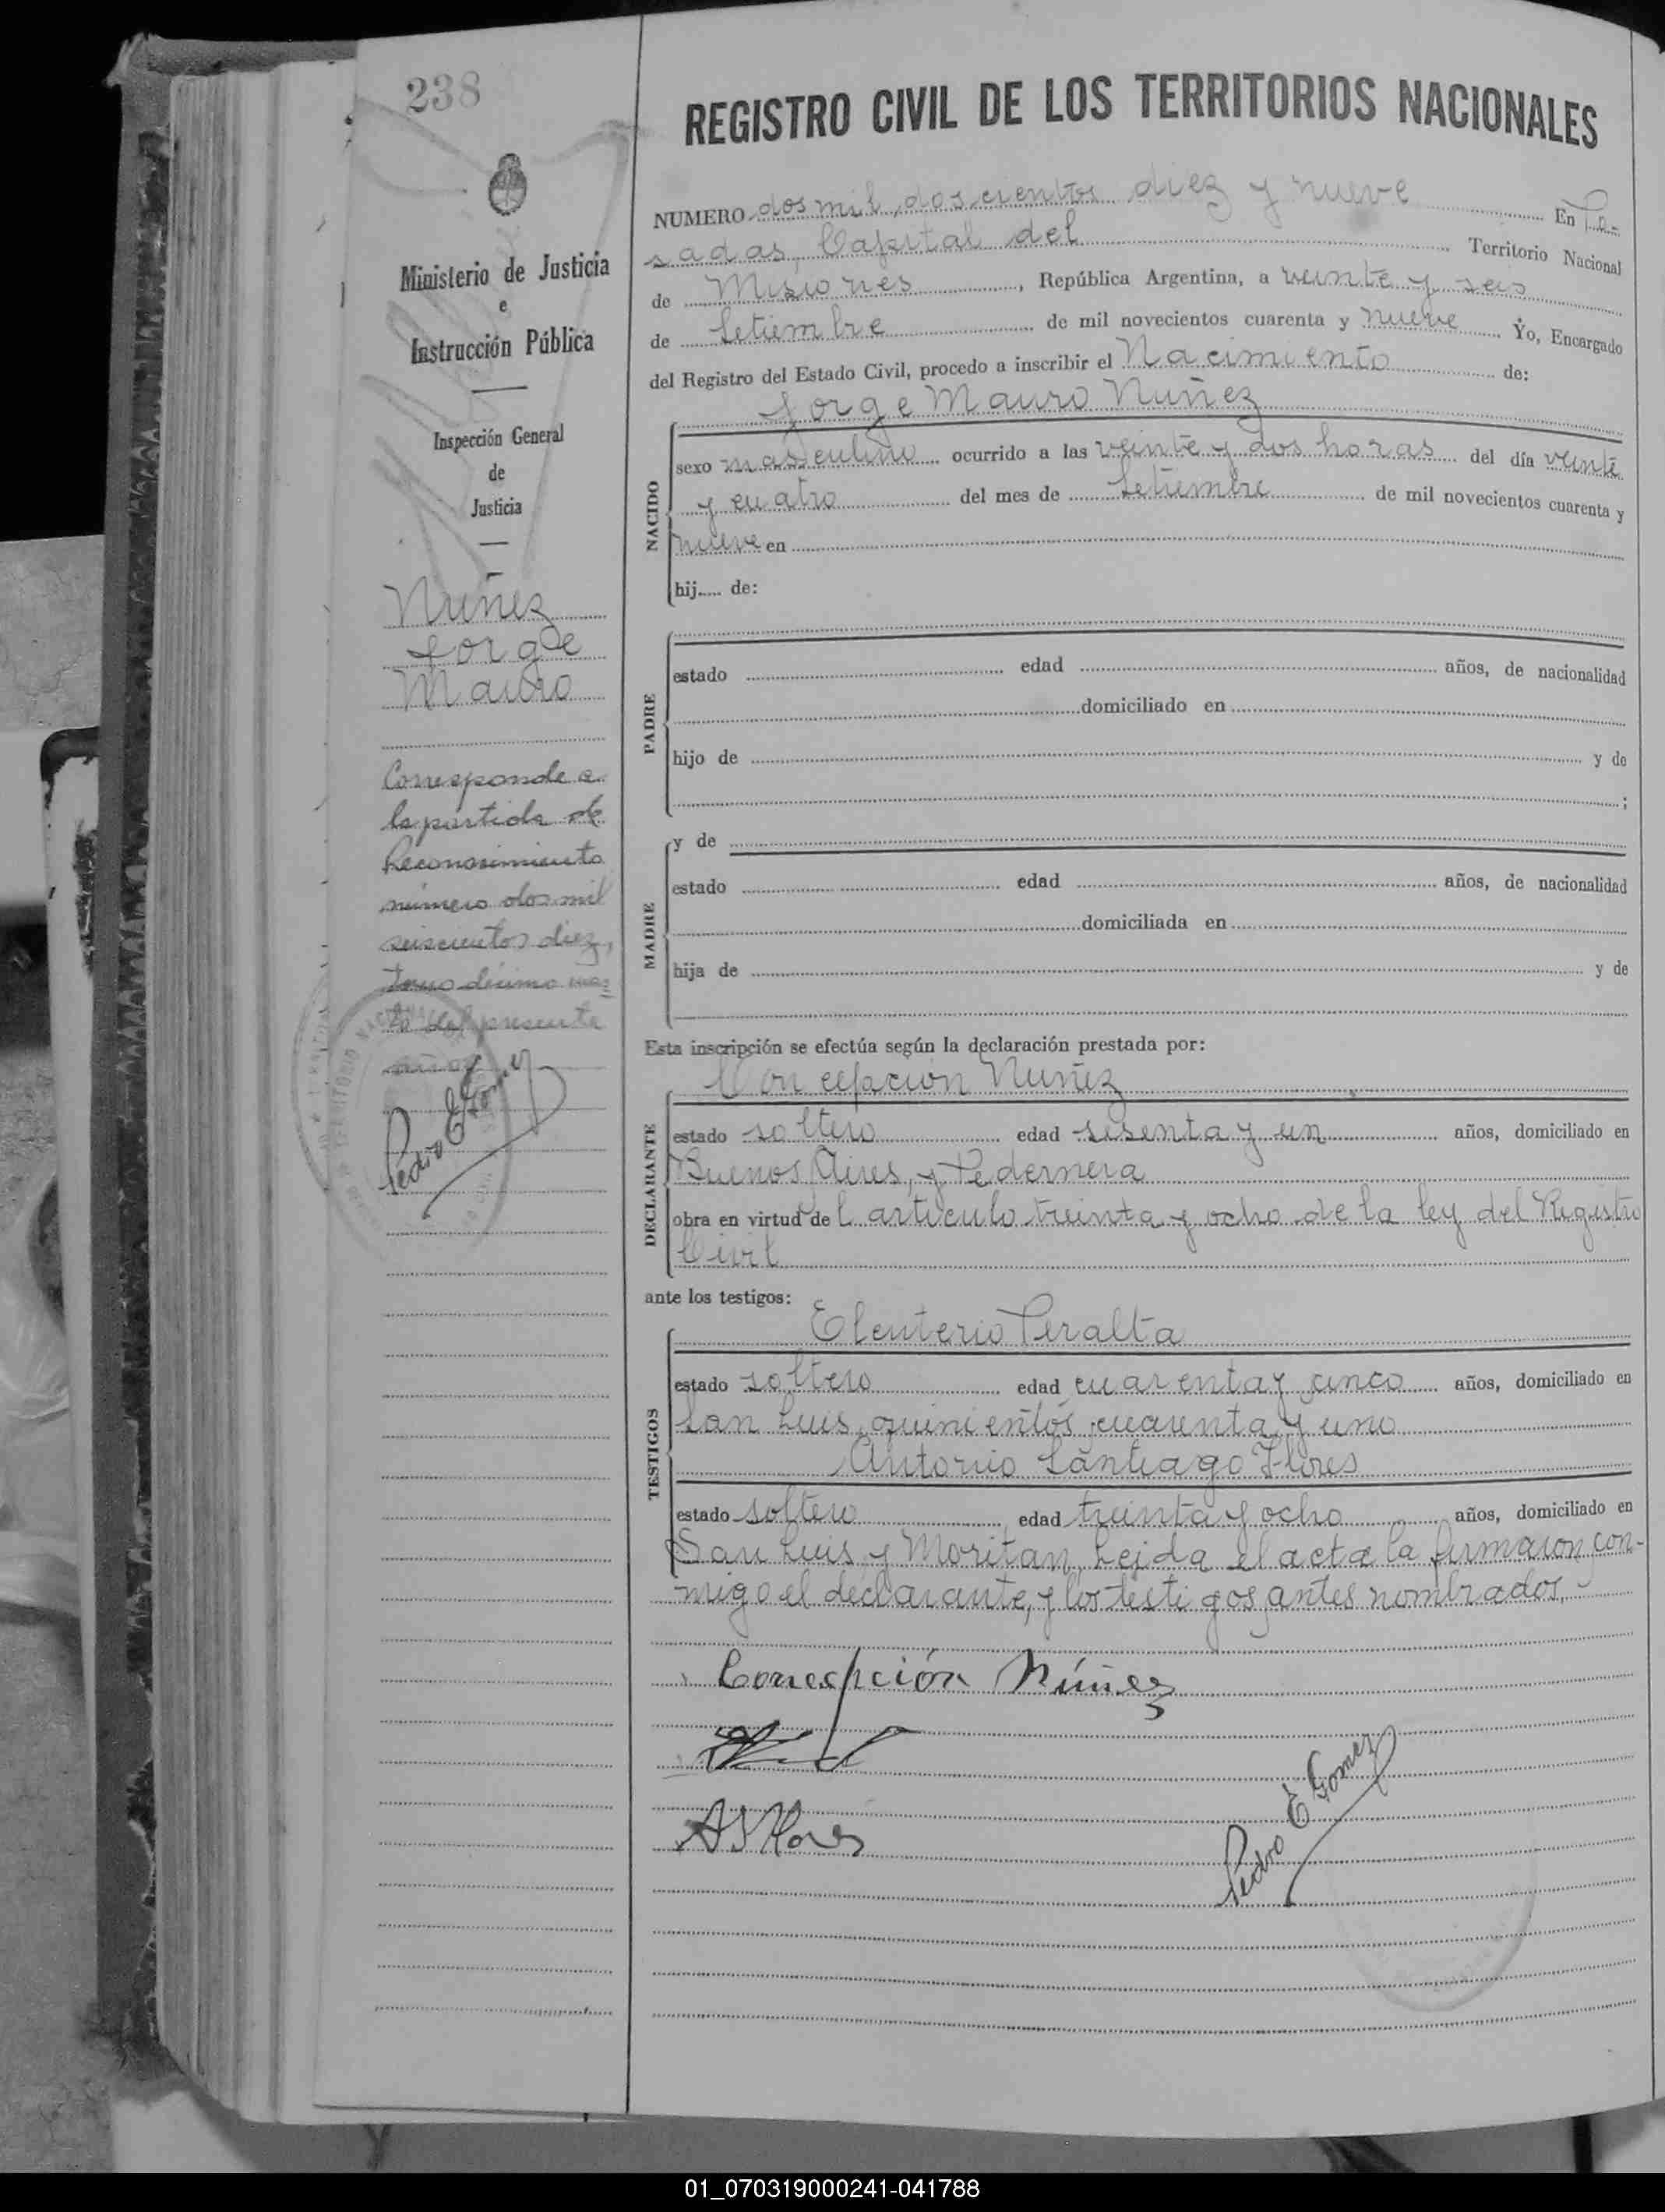 238
Ministerio de Justicia
e
Instrucción Pública
Inspección General
de
Justicia
Nuñez
Jorge
Mauro
Corresponde a
la partida de
Reconocimiento
número dos mil
seiscientos diez,
tomo décimo
del presente
año
Pedro E Gomez
REGISTRO CIVIL DE LOS TERRITORIOS NACIONALES
NUMERO dos mil, doscientos diez y nueve En Po-
sadas, Capital del Territorio Nacional
de Misiones, República Argentina, a veinte y seis
de Setiembre de mil novecientos cuarenta y nueve Yo, Encargado
del Registro del Estado Civil, procedo a inscribir el Nacimiento de:
Jorge Mauro Nuñez
NACIDO
sexo masculino ocurrido a las veinte y dos horas del día veinte
y cuatro del mes de Setiembre de mil novecientos cuarenta y
nueve en
hij..... de:
PADRE
estado edad años, de nacionalidad
domiciliado en
hijo de y de
;
MADRE
y de
estado edad años, de nacionalidad
domiciliada en
hija de y de
Esta inscripción se efectúa según la declaración prestada por:
Concepcion Nuñez
DECLARANTE
estado soltero edad sesenta y un años, domiciliado en
Buenos Aires, y Pedernera
obra en virtud del articulo treinta y ocho de la ley del Registro
Civil
ante los testigos:
Eleuterio Peralta
TESTIGOS
estado soltero edad cuarenta y cinco años, domiciliado en
San Luis, quinientos cuarenta y uno
Antonio Santiago Flores
estado soltero edad treinta y ocho años, domiciliado en
San Luis y Moritan, Leida el acta la firmaron con-
migo el declarante, y los testigos antes nombrados.
Concepción Núñez
A S Flores
Pedro E Gomez
01_070319000241-041788